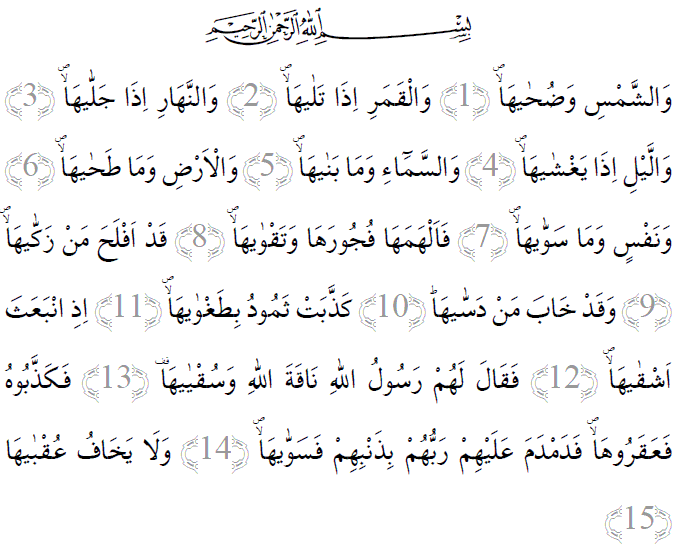 بِسْمِ اللّٰهِ الرَّحْمٰنِ الرَّحِيمِ
وَالشَّمْسِ وَضُحٰيهَاۙۖ ﴿1﴾ وَالْقَمَرِ اِذَا تَلٰيهَاۙۖ ﴿2﴾ وَالنَّهَارِ اِذَا جَلّٰيهَاۙۖ ﴿3﴾
وَالَّيْلِ اِذَا يَغْشٰيهَاۙۖ ﴿4﴾ وَالسَّمَٓاءِ وَمَا بَنٰيهَاۙۖ ﴿5﴾ وَالْاَرْضِ وَمَا طَحٰيهَاۙۖ ﴿6﴾
وَنَفْسٍ وَمَا سَوّٰيهَاۙۖ ﴿7﴾ فَاَلْهَمَهَا فُجُورَهَا وَتَقْوٰيهَاۙۖ ﴿8﴾ قَدْ اَفْلَحَ مَنْ زَكّٰيهَاۙۖ
﴿9﴾ وَقَدْ خَابَ مَنْ دَسّٰيهَاؕ ﴿10﴾ كَذَّبَتْ ثَمُودُ بِطَغْوٰيهَاۙۖ ﴿11﴾ اِذِ انْبَعَثَ
اَشْقٰيهَاۙۖ ﴿12﴾ فَقَالَ لَهُمْ رَسُولُ اللّٰهِ نَاقَةَ اللّٰهِ وَسُقْيٰيهَا ﴿13﴾ فَكَذَّبُوهُ
فَعَقَرُوهَاۙۖ فَدَمْدَمَ عَلَيْهِمْ رَبُّهُمْ بِذَنْبِهِمْ فَسَوّٰيهَاۙۖ ﴿14﴾ وَلَا يَخَافُ عُقْبٰيهَا
﴿15﴾